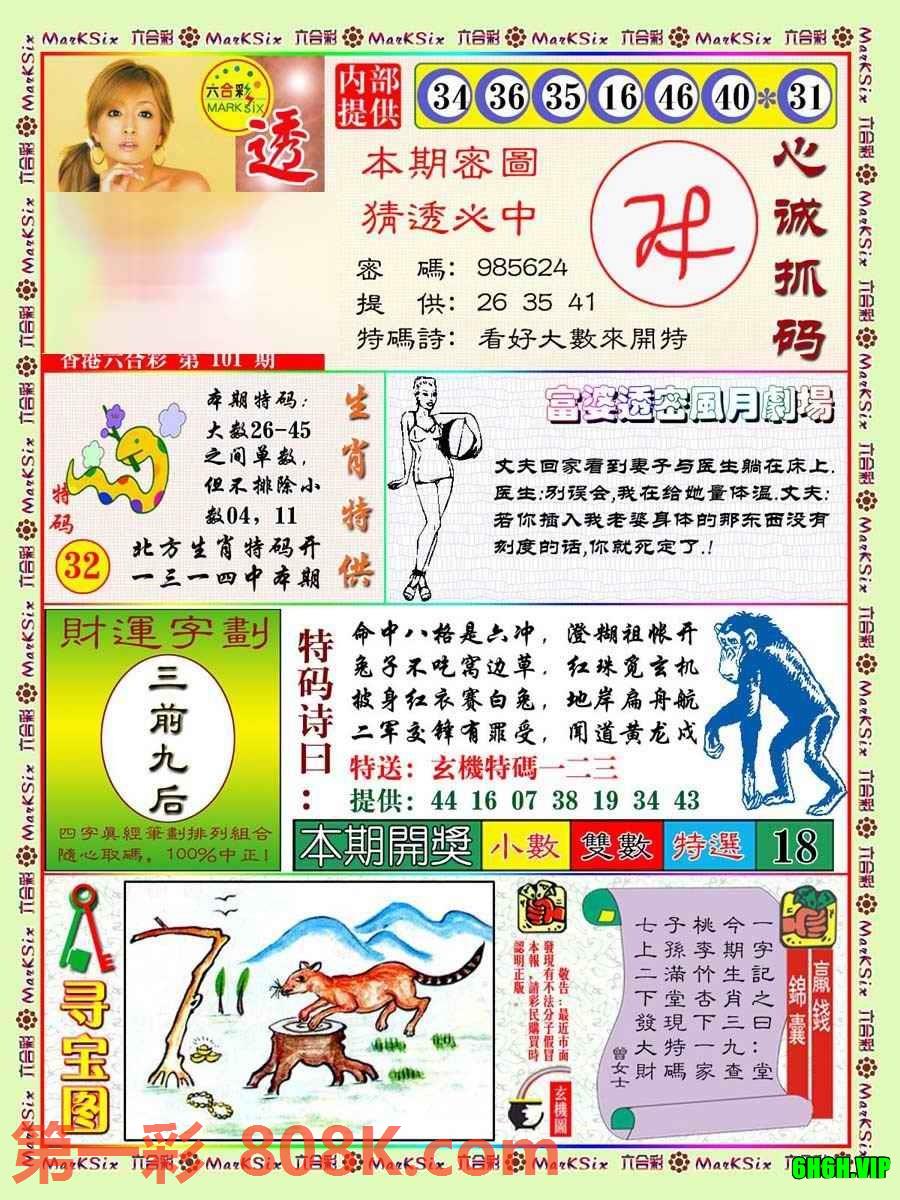 MarKSix 六合彩 MarKSix 六合彩 MarKSix 六合彩 MarKSix 六合彩 MarKSix 六合彩
六合彩
MARK SIX
透
内部
提供
34 36 35 16 46 40 * 31
本期密圖
猜透必中
密 碼: 985624
提 供: 26 35 41
特碼詩: 看好大數來開特
心诚抓码
香港六合彩 第 101 期
特码
32
本期特码:
大数26-45
之间单数,
但不排除小
数04, 11
北方生肖特码开
一三一四中本期
生肖特供
富婆透密風月劇場
丈夫回家看到妻子与医生躺在床上.
医生:别误会,我在给她量体温.丈夫:
若你插入我老婆身体的那东西没有
刻度的话,你就死定了.!
財運字劃
三前九后
四字眞經筆劃排列組合
隨心取碼，100%中正!
特码诗曰:
命中八格是六冲，澄糊祖帐开
兔子不吃窝边草，红珠觅玄机
披身红衣赛白兔，地岸扁舟航
二军交锋有罪受，闻道黄龙戍
特送: 玄機特碼一二三
提供: 44 16 07 38 19 34 43
本期開獎 小數 雙數 特選 18
寻宝图
敬告:最近市面
發現有不法分子假冒
本報,請彩民購買時
認明正版。
玄機圖
一字記之曰:堂
今期生肖三九查
桃李竹杏下一家
子孫滿堂現特碼
七上二下發大財
曾女士
贏錢
錦囊
第一彩 808K.com
MarKSix 六合彩 MarKSix 六合彩 MarKSix 六合彩 MarKSix 六合彩 MarKSix 六合彩
6H6H.VIP